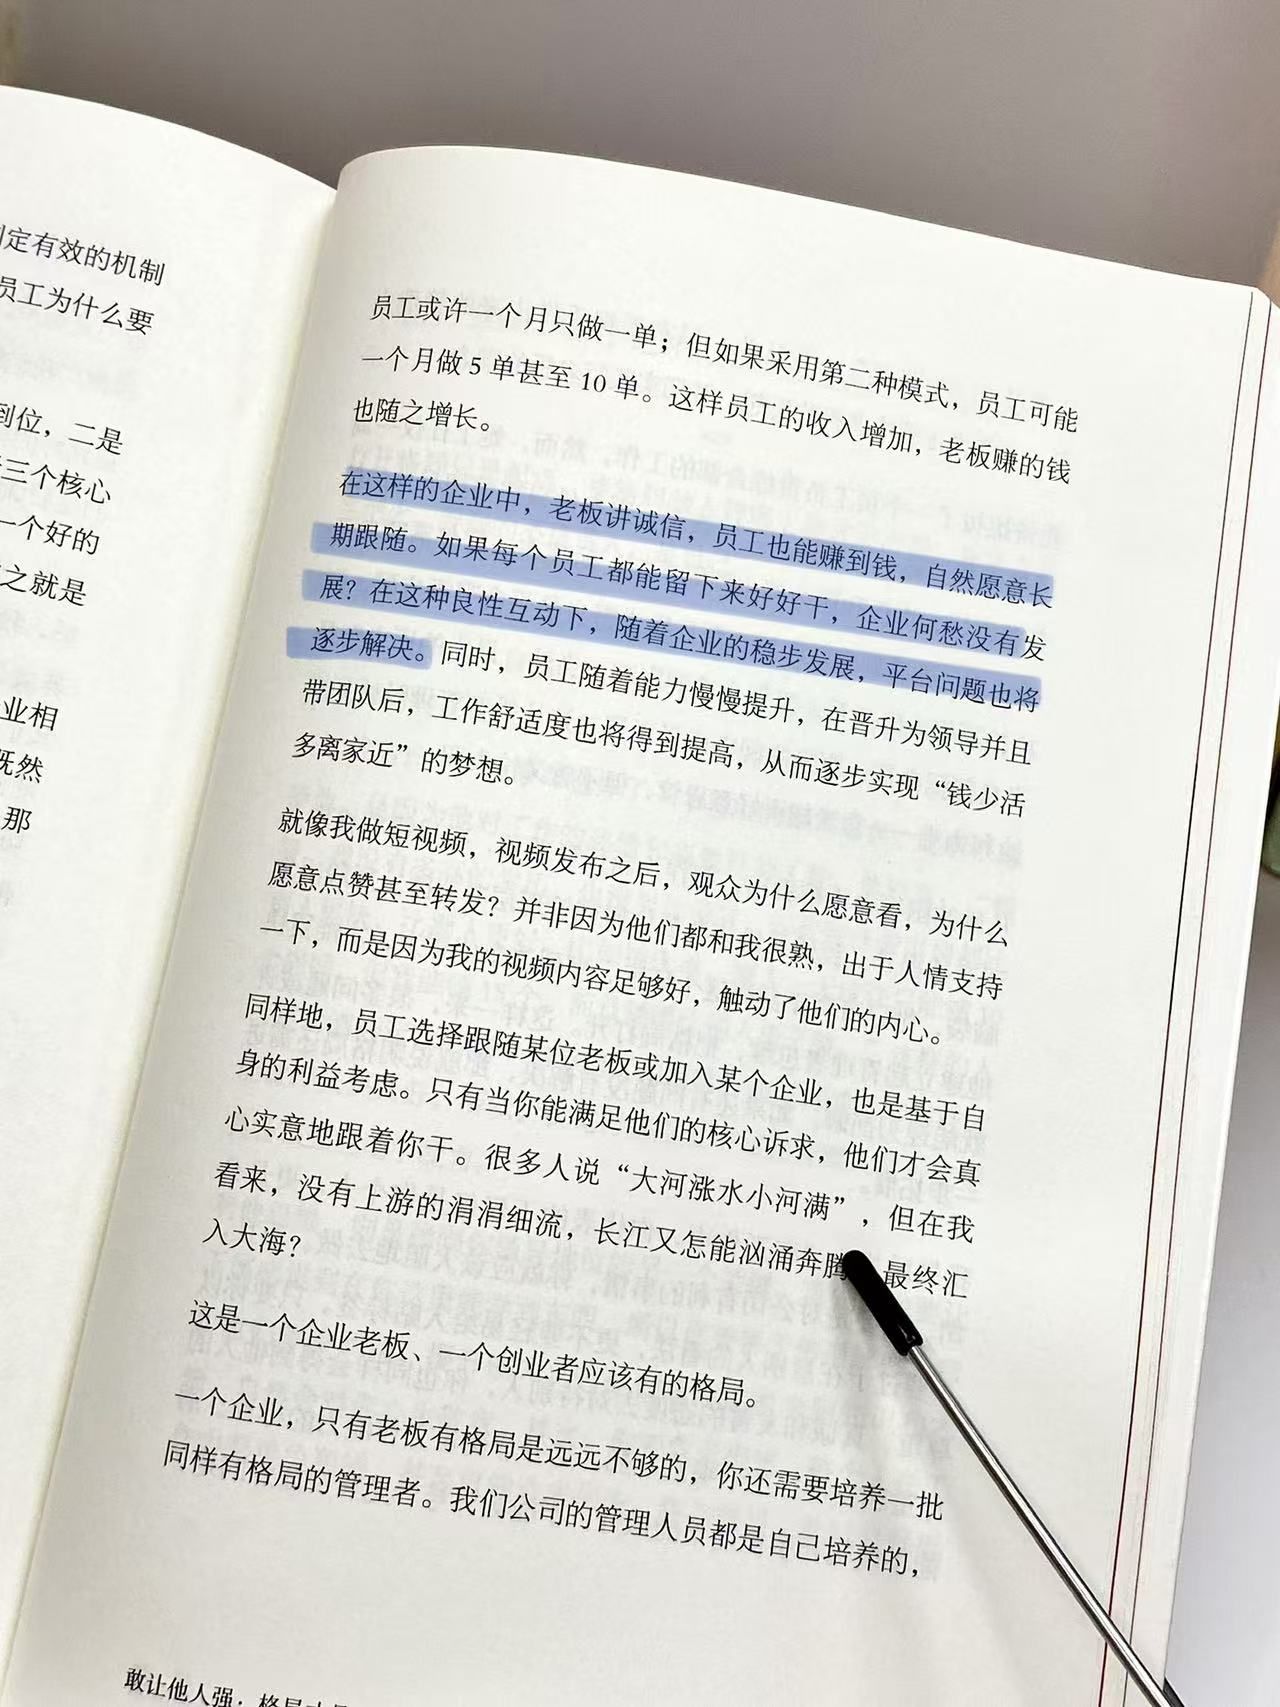 定有效的机制
员工为什么要
到位，二是
三个核心
一个好的
之就是
业相
既然
那
员工或许一个月只做一单；但如果采用第二种模式，员工可能
一个月做 5 单甚至 10 单。这样员工的收入增加，老板赚的钱
也随之增长。
在这样的企业中，老板讲诚信，员工也能赚到钱，自然愿意长
期跟随。如果每个员工都能留下来好好干，企业何愁没有发
展？在这种良性互动下，随着企业的稳步发展，平台问题也将
逐步解决。同时，员工随着能力慢慢提升，在晋升为领导并且
带团队后，工作舒适度也将得到提高，从而逐步实现“钱少活
多离家近”的梦想。
就像我做短视频，视频发布之后，观众为什么愿意看，为什么
愿意点赞甚至转发？并非因为他们都和我很熟，出于人情支持
一下，而是因为我的视频内容足够好，触动了他们的内心。
同样地，员工选择跟随某位老板或加入某个企业，也是基于自
身的利益考虑。只有当你能满足他们的核心诉求，他们才会真
心实意地跟着你干。很多人说“大河涨水小河满”，但在我
看来，没有上游的涓涓细流，长江又怎能汹涌奔腾 最终汇
入大海？
这是一个企业老板、一个创业者应该有的格局。
一个企业，只有老板有格局是远远不够的，你还需要培养一批
同样有格局的管理者。我们公司的管理人员都是自己培养的，
敢让他人强：格局